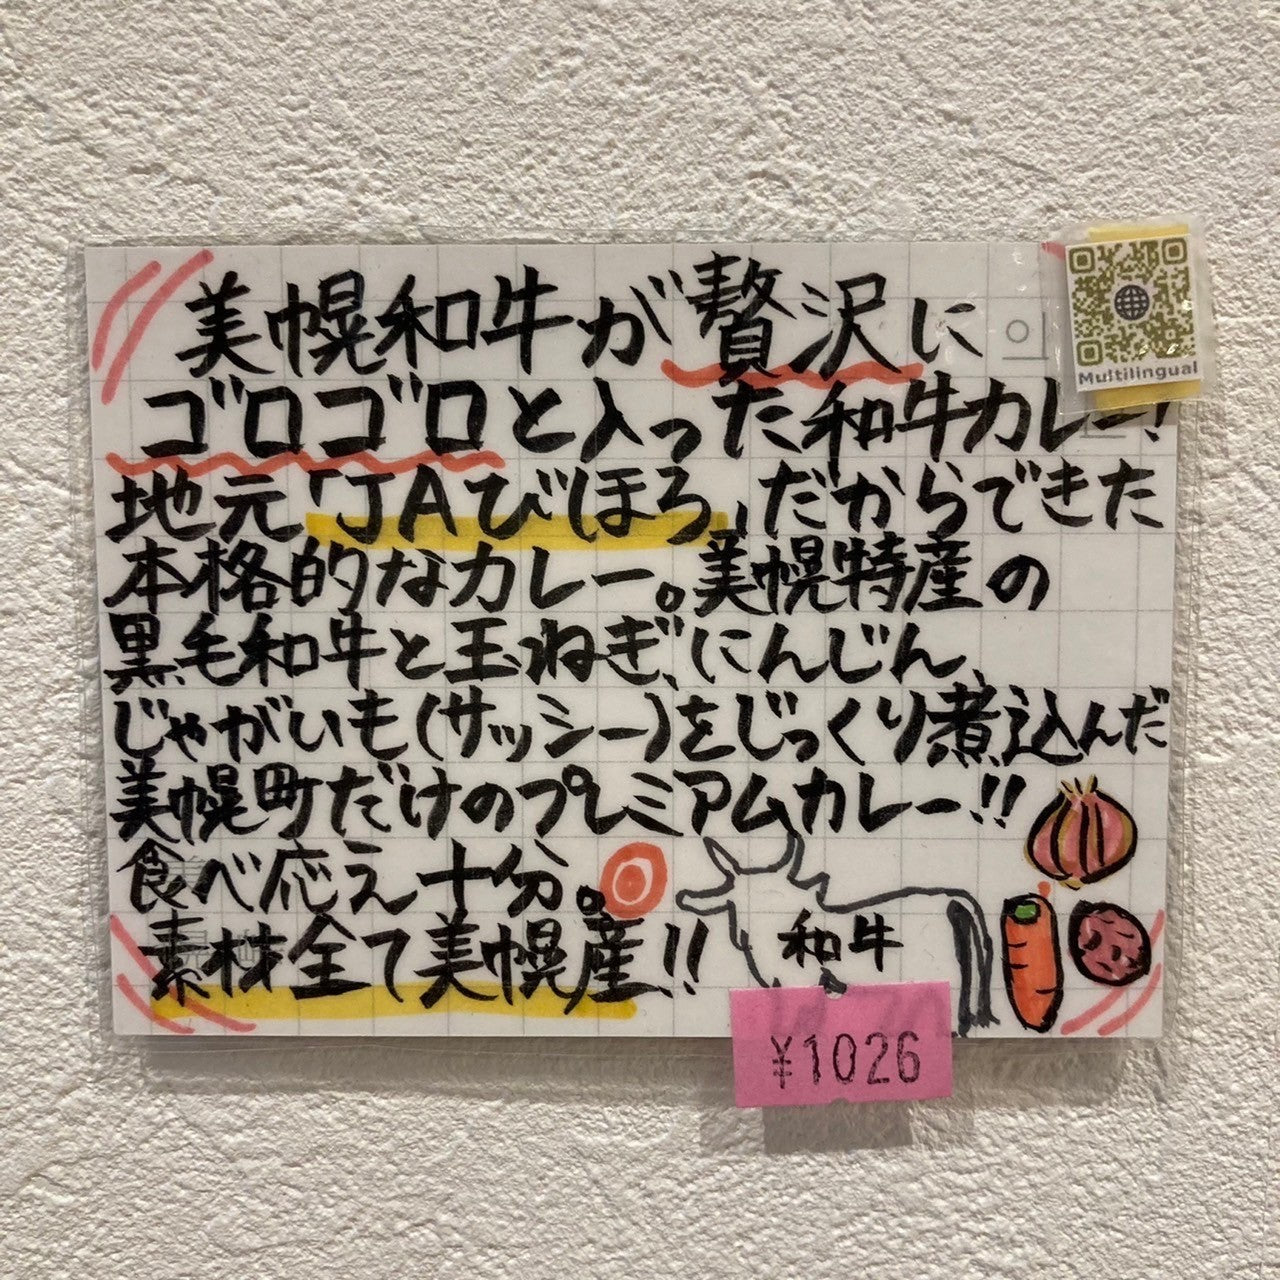 美幌和牛が贅沢に
ゴロゴロと入った和牛カレー!
地元「JAびほろ」だからできた
本格的なカレー。美幌特産の
黒毛和牛と玉ねぎ、にんじん、
じゃがいも(サッシー)をじっくり煮込んだ
美幌町だけのプレミアムカレー!!
食べ応え十分。
素材全て美幌産!!
和牛
¥1026
Multilingual